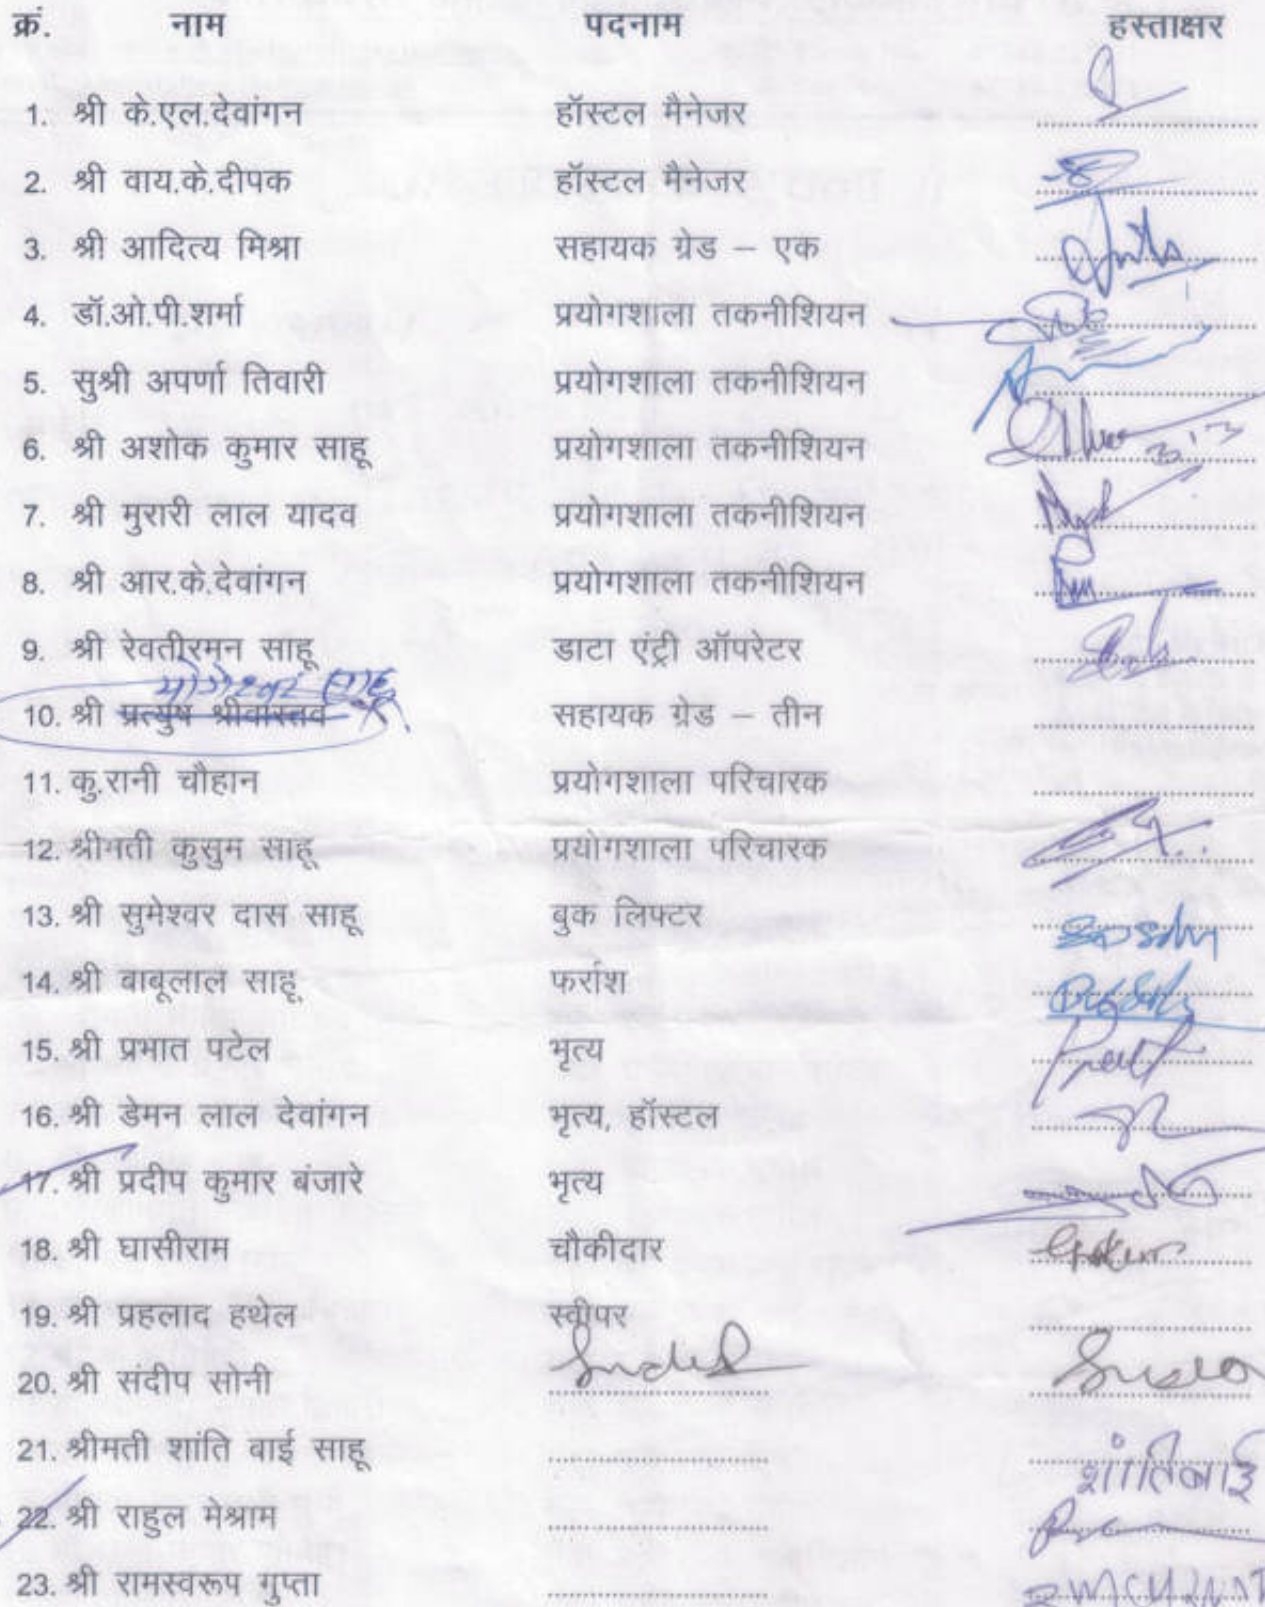 क्रं. नाम पदनाम हस्ताक्षर
1. श्री के.एल.देवांगन हॉस्टल मैनेजर
2. श्री वाय.के.दीपक हॉस्टल मैनेजर
3. श्री आदित्य मिश्रा सहायक ग्रेड – एक
4. डॉ.ओ.पी.शर्मा प्रयोगशाला तकनीशियन
5. सुश्री अपर्णा तिवारी प्रयोगशाला तकनीशियन
6. श्री अशोक कुमार साहू प्रयोगशाला तकनीशियन
7. श्री मुरारी लाल यादव प्रयोगशाला तकनीशियन
8. श्री आर.के.देवांगन प्रयोगशाला तकनीशियन
9. श्री रेवतीरमन साहू डाटा एंट्री ऑपरेटर
10. श्री प्रत्युष श्रीवास्तव सहायक ग्रेड – तीन
11. कु.रानी चौहान प्रयोगशाला परिचारक
12. श्रीमती कुसुम साहू प्रयोगशाला परिचारक
13. श्री सुमेश्वर दास साहू बुक लिफ्टर
14. श्री बाबूलाल साहू फर्राश
15. श्री प्रभात पटेल भृत्य
16. श्री डेमन लाल देवांगन भृत्य, हॉस्टल
17. श्री प्रदीप कुमार बंजारे भृत्य
18. श्री घासीराम चौकीदार
19. श्री प्रहलाद हथेल स्वीपर
20. श्री संदीप सोनी
21. श्रीमती शांति बाई साहू शांतिबाई
22. श्री राहुल मेश्राम
23. श्री रामस्वरूप गुप्ता